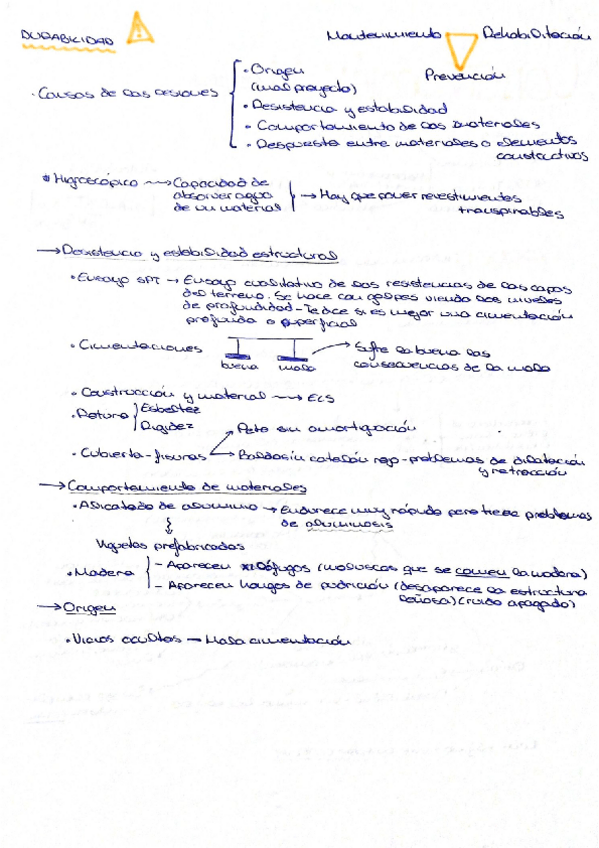 DURABILIDAD
Mantenimiento Rehabilitación
Prevención
· Causas de las lesiones
· Origen
(mal proyecto)
· Resistencia y estabilidad
· Comportamiento de los materiales
· Respuesta entre materiales o elementos
constructivos
* Higroscópico → Capacidad de
absorver agua
de un material
→ Hay que poner revestimientos
transpirables
→ Resistencia y estabilidad estructural
· Ensayo SPT → Ensayo cualitativo de las resistencias de las capas
del terreno. Se hace con golpes viendo los niveles
de profundidad - Te dice si es mejor una cimentación
profunda o superficial
· Cimentaciones
buena mala
→ Sufre la buena las
consecuencias de la mala
· Construcción y material → ELS
· Rotura
Esbeltez
Rigidez
· Cubierta - fisuras
→ Peto sin amortiguación
→ Baldosín catalán rojo - problemas de dilatación
y retracción
→ Comportamiento de materiales
· Alicatado de aluminio → Endurece muy rápido pero tiene problemas
de aluminosis
Viguetas prefabricadas
· Madera
- Aparecen xilófugos (moluscos que se comen la madera)
- Aparecen hongos de pudrición (desaparece la estructura
leñosa) (ruido apagado)
→ Origen
· Vicios ocultos → Mala cimentación